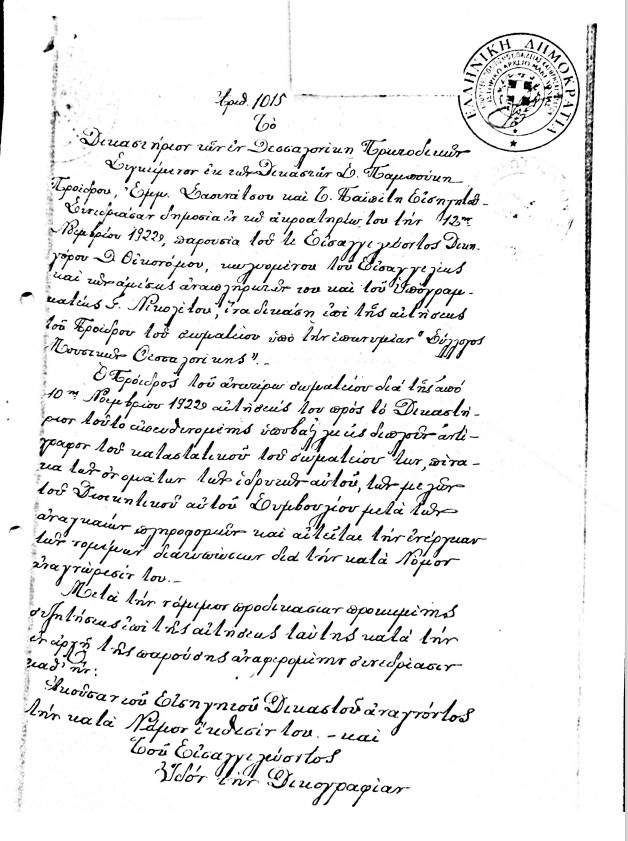 ΕΛΛΗΝΙΚΗ ΔΗΜΟΚΡΑΤΙΑ
Ἀριθ. 1015
Τὸ
Δικαστήριον τῶν ἐν Θεσσαλονίκῃ Πρωτοδικῶν
Συγκείμενον ἐκ τῶν Δικαστῶν Δ. Παμπούκη
Προέδρου, Ἐμμ. καὶ Εἰσηγητοῦ
Συνεδρίασαν δημοσίᾳ ἐν τῷ ἀκροατηρίῳ του τὴν 12ην
Νοεμβρίου 1922, παρουσίᾳ τοῦ τε Εἰσαγγελεύοντος Δικη-
γόρου Δ. Οἰκονόμου, κωλυομένου τοῦ Εἰσαγγελέως
καὶ τῶν ἀμέσως ἀναπληρωτῶν του καὶ τοῦ Ὑπογραμ-
ματέως Γ. Νικολέτου, ἵνα δικάσῃ ἐπὶ τῆς αἰτήσεως
τοῦ Προέδρου τοῦ σωματείου ὑπὸ τὴν ἐπωνυμίαν "Σύλλογος
Θεσσαλονίκης". -
Ὁ Πρόεδρος τοῦ ἀνωτέρω σωματείου διὰ τῆς ἀπὸ
10ης Νοεμβρίου 1922 αἰτήσεώς του πρὸς τὸ Δικαστή-
ριον τοῦτο ἀπευθυνομένης διπλοῦν ἀντί-
γραφον τοῦ καταστατικοῦ τοῦ σωματείου των, πίνα-
κα τῶν ὀνομάτων τῶν ἱδρυτῶν αὐτοῦ, τῶν μελῶν
τοῦ Διοικητικοῦ αὐτοῦ Συμβουλίου μετὰ τῶν
ἀναγκαίων πληροφοριῶν καὶ αἰτεῖται τὴν ἐνέργειαν
τῶν νομίμων διατυπώσεων διὰ τὴν κατὰ Νόμον
ἀναγνώρισίν του. -
Μετὰ τὴν νόμιμον προδικασίαν προκειμένης
συζητήσεως ἐπὶ τῆς αἰτήσεως ταύτης κατὰ τὴν
ἐν ἀρχῇ τῆς παρούσης ἀναφερομένην συνεδρίασιν
καθ' ἥν:
Ἀκοῦσαν τοῦ Εἰσηγητοῦ Δικαστοῦ ἀναγνόντος
τὴν κατὰ Νόμον ἔκθεσίν του. - καὶ
Τοῦ Εἰσαγγελεύοντος
Ἰδὸν τὴν Δικογραφίαν